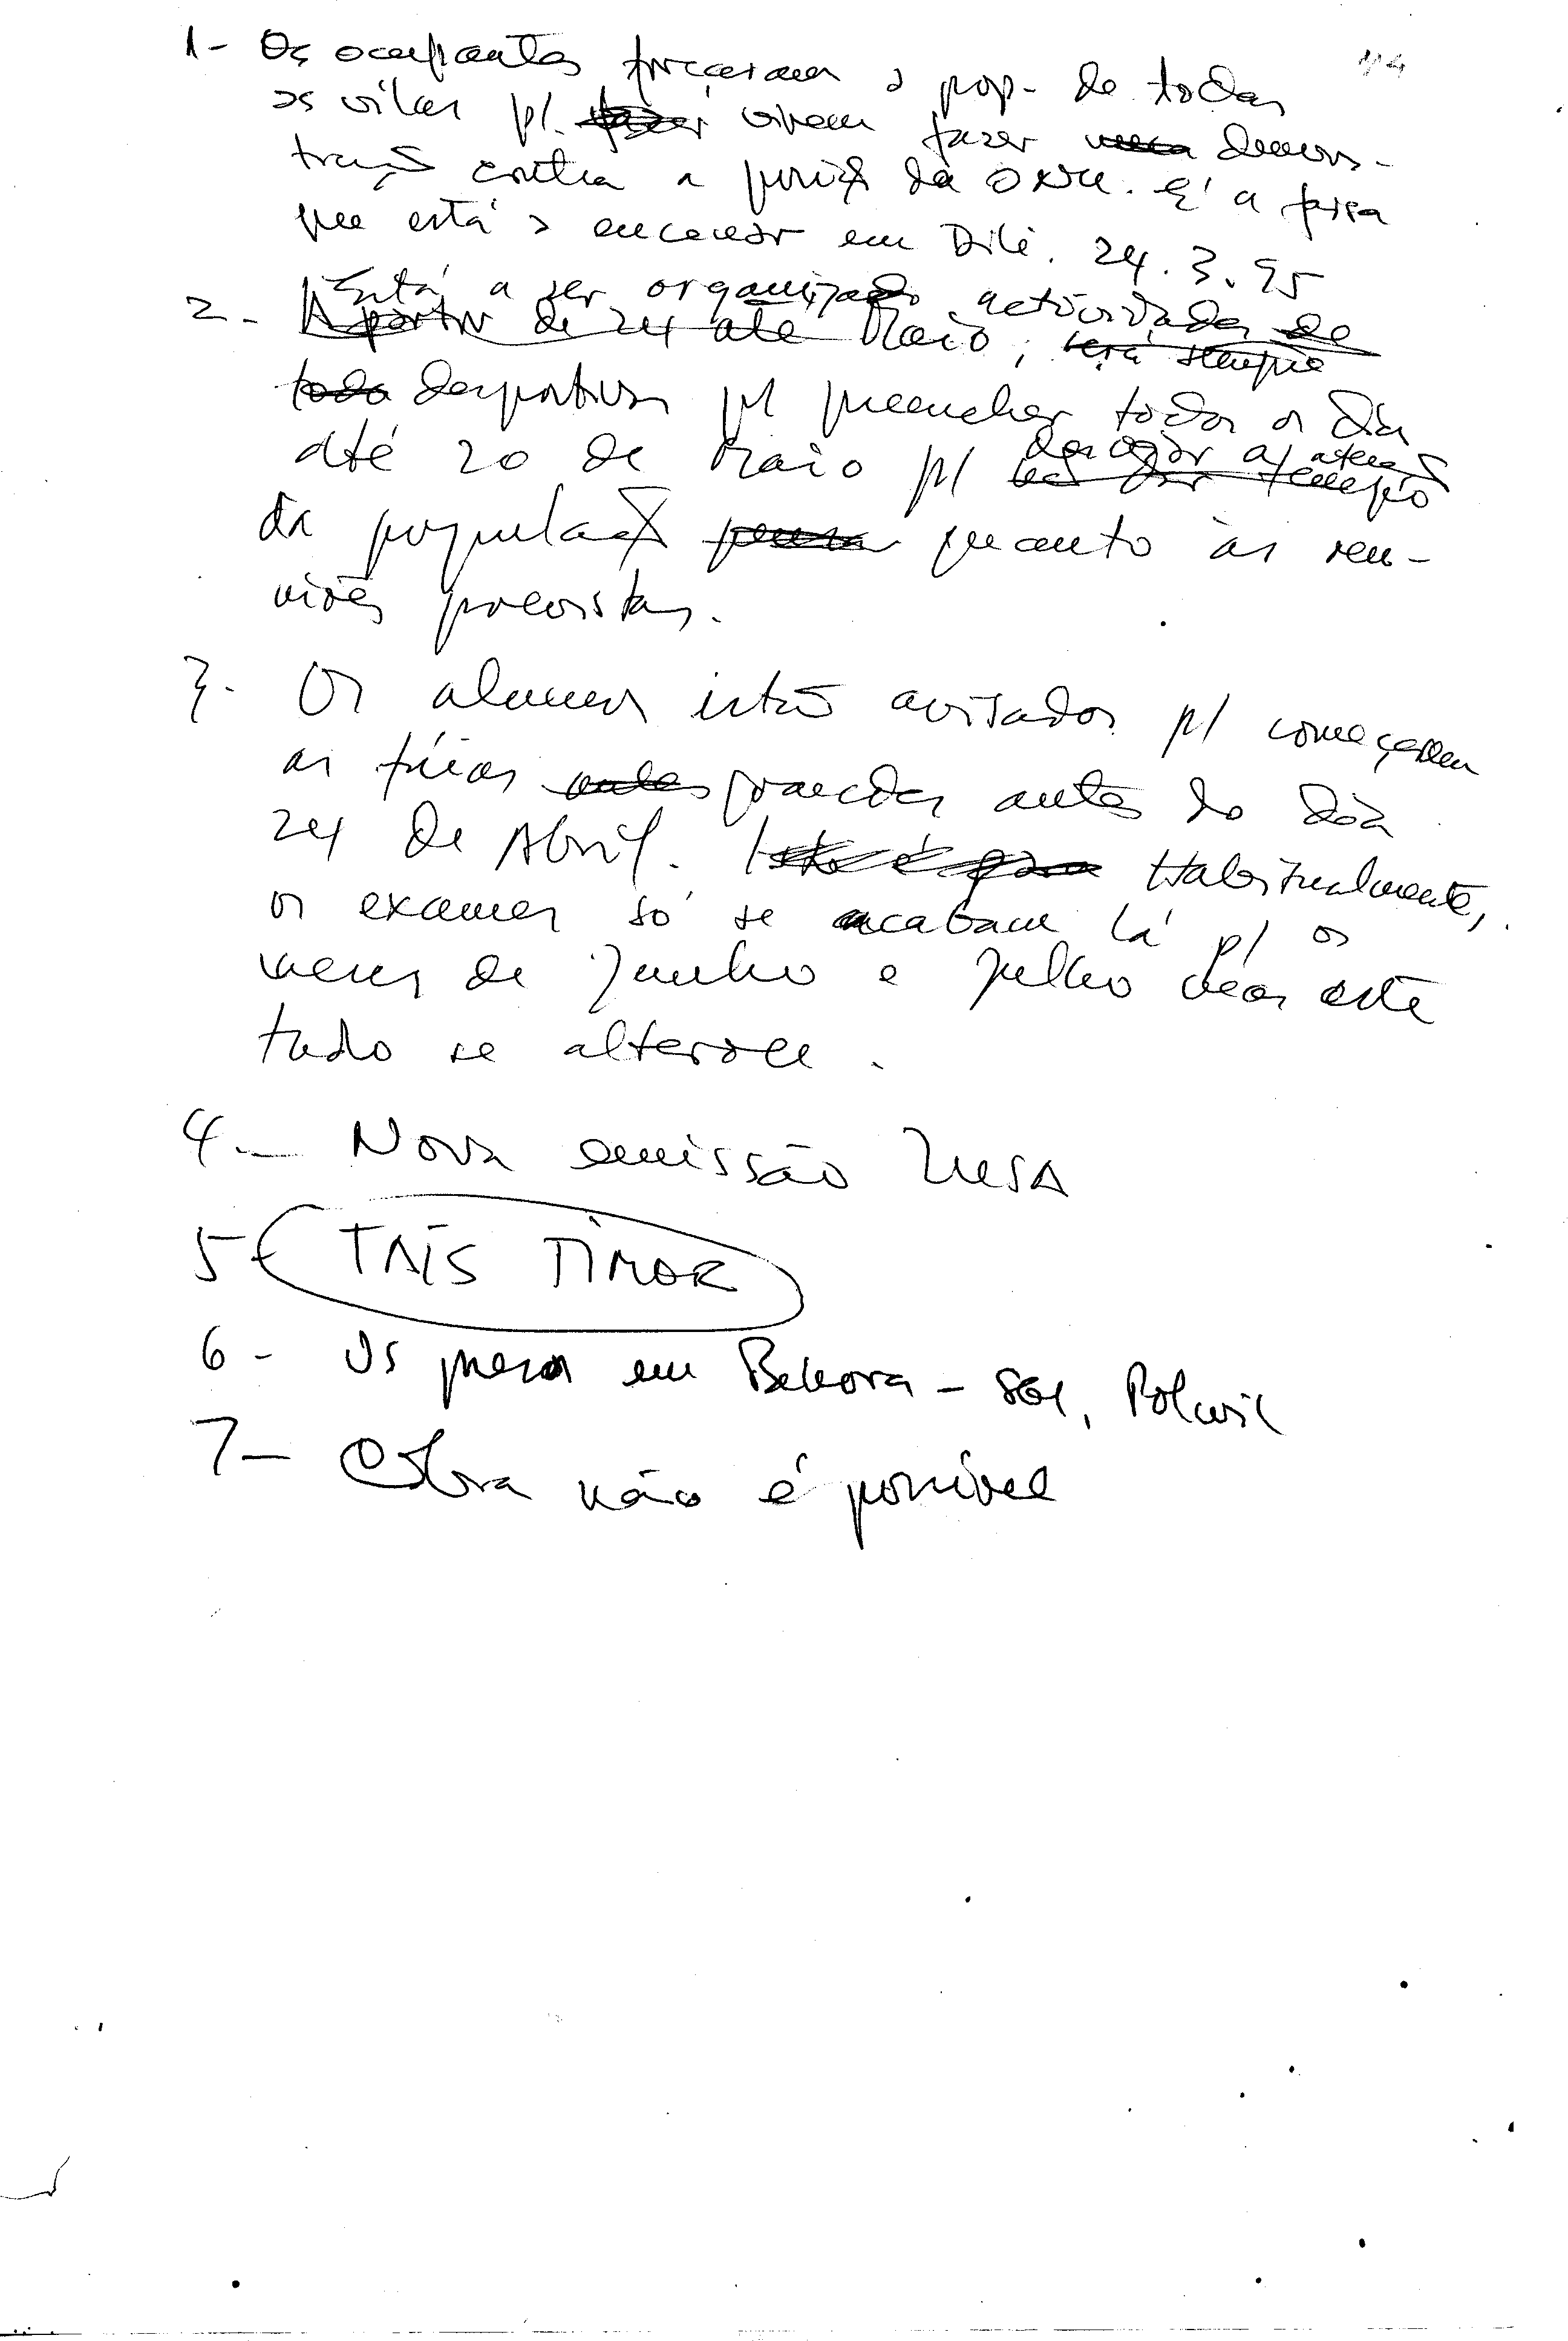 1- Os ocupantes forçaram a pop. de todas
as vilas p/. fazer virem fazer uma demons-
tração contra a posição da ONU. É a farsa
que está a encenar em Dili. 24.3.95
Está a ser organizado actividades de
2- A partir de 24 até Maio, será sempre
toda desportivas p/ preencher todos os dias
até 20 de Maio p/
desviar a atenção
da população quanto às reu-
niões previstas.
3- Os alunos estão avisados p/ começarem
as férias antes grandes antes do dia
24 de Abril. Isto é para Habitualmente,
os exames só se acabam lá p/ os
meses de Junho e Julho mas este
tudo se alterou.
4.- Nova emissão
5- TAIS TIMOR
6- Os presos em Bekora - , Polwil
7- Cobra não é possível